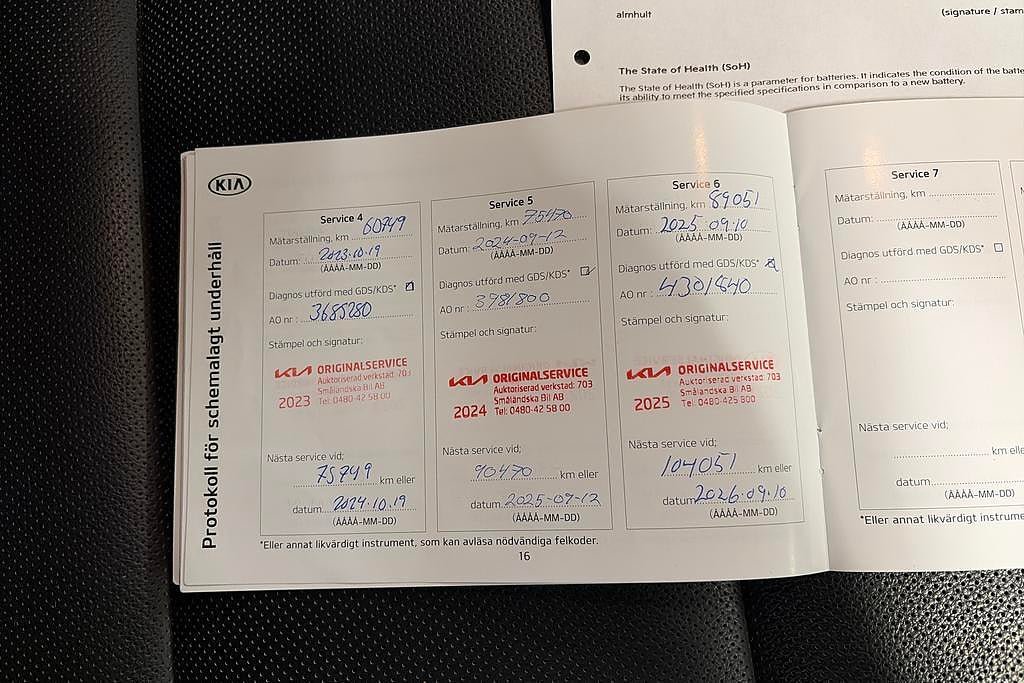 almhult
(signature / stam
The State of Health (SoH)
The State of Health (SoH) is a parameter for batteries. It indicates the condition of the batte
its ability to meet the specified specifications in comparison to a new battery.
KIA
Protokoll för schemalagt underhåll
Service 4
Mätarställning, km 60749
Datum: 2023.10.19
(ÅÅÅÅ-MM-DD)
Diagnos utförd med GDS/KDS*
AO nr : 3685280
Stämpel och signatur:
KIA ORIGINALSERVICE
Auktoriserad verkstad: 703
Småländska Bil AB
2023 Tel: 0480-42 58 00
Nästa service vid;
75749 km eller
datum 2024.10.19
(ÅÅÅÅ-MM-DD)
Service 5
Mätarställning, km 75470
Datum: 2024-09-12
(ÅÅÅÅ-MM-DD)
Diagnos utförd med GDS/KDS*
AO nr : 3981800
Stämpel och signatur:
KIA ORIGINALSERVICE
Auktoriserad verkstad: 703
Småländska Bil AB
2024 Tel: 0480-42 58 00
Nästa service vid;
90470 km eller
datum 2025-09-12
(ÅÅÅÅ-MM-DD)
Service 6
Mätarställning, km 89051
Datum: 2025 09.10
(ÅÅÅÅ-MM-DD)
Diagnos utförd med GDS/KDS*
AO nr : 4301840
Stämpel och signatur:
KIA ORIGINALSERVICE
Auktoriserad verkstad: 703
Småländska Bil AB
2025 Tel: 0480-425 800
Nästa service vid;
104051 km eller
datum 2026.09.10
(ÅÅÅÅ-MM-DD)
*Eller annat likvärdigt instrument, som kan avläsa nödvändiga felkoder.
16
Service 7
Mätarställning, km
Datum:
(ÅÅÅÅ-MM-DD)
Diagnos utförd med GDS/KDS*
AO nr :
Stämpel och signatur:
Nästa service vid;
km elle
datum
(ÅÅÅÅ-MM-DD)
*Eller annat likvärdigt instrume